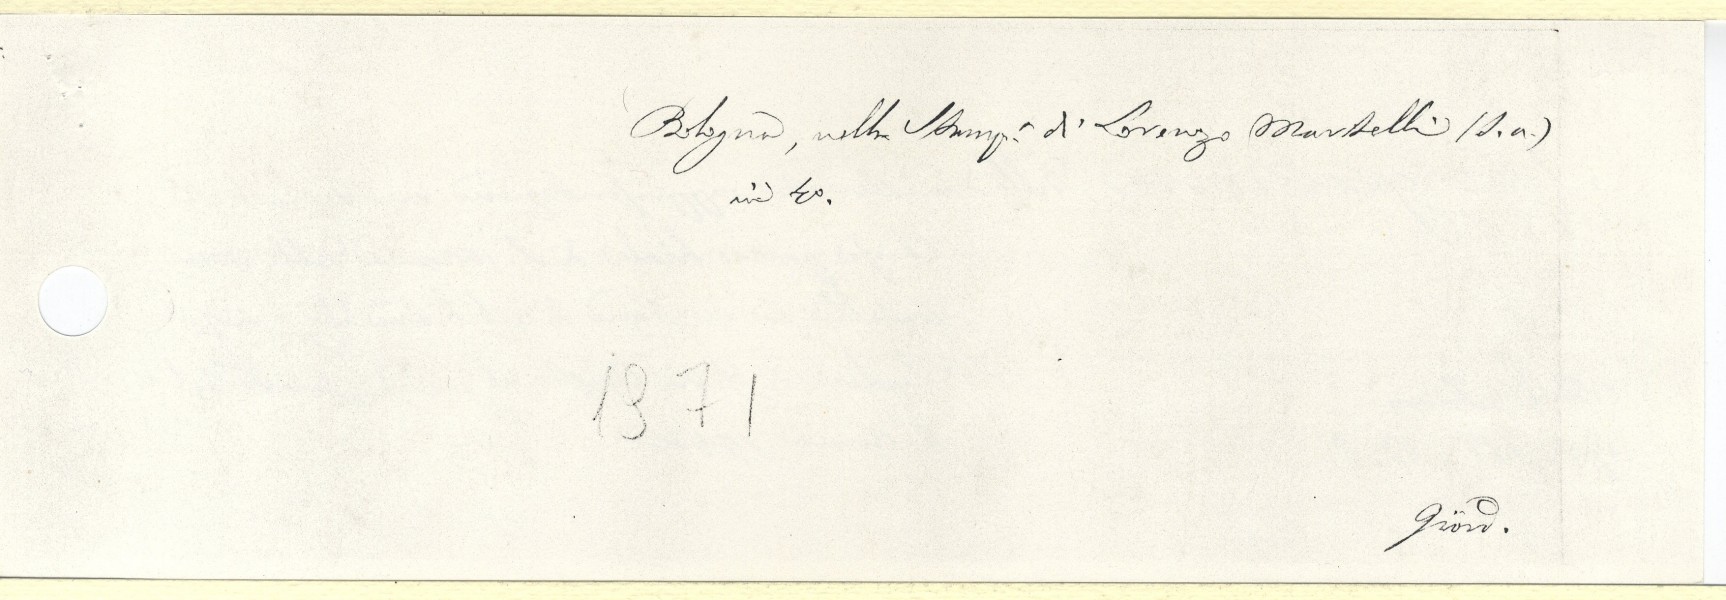 Bologna, nella Stamp.ª di Lorenzo Martelli (s. a.)
in 4º.
1971